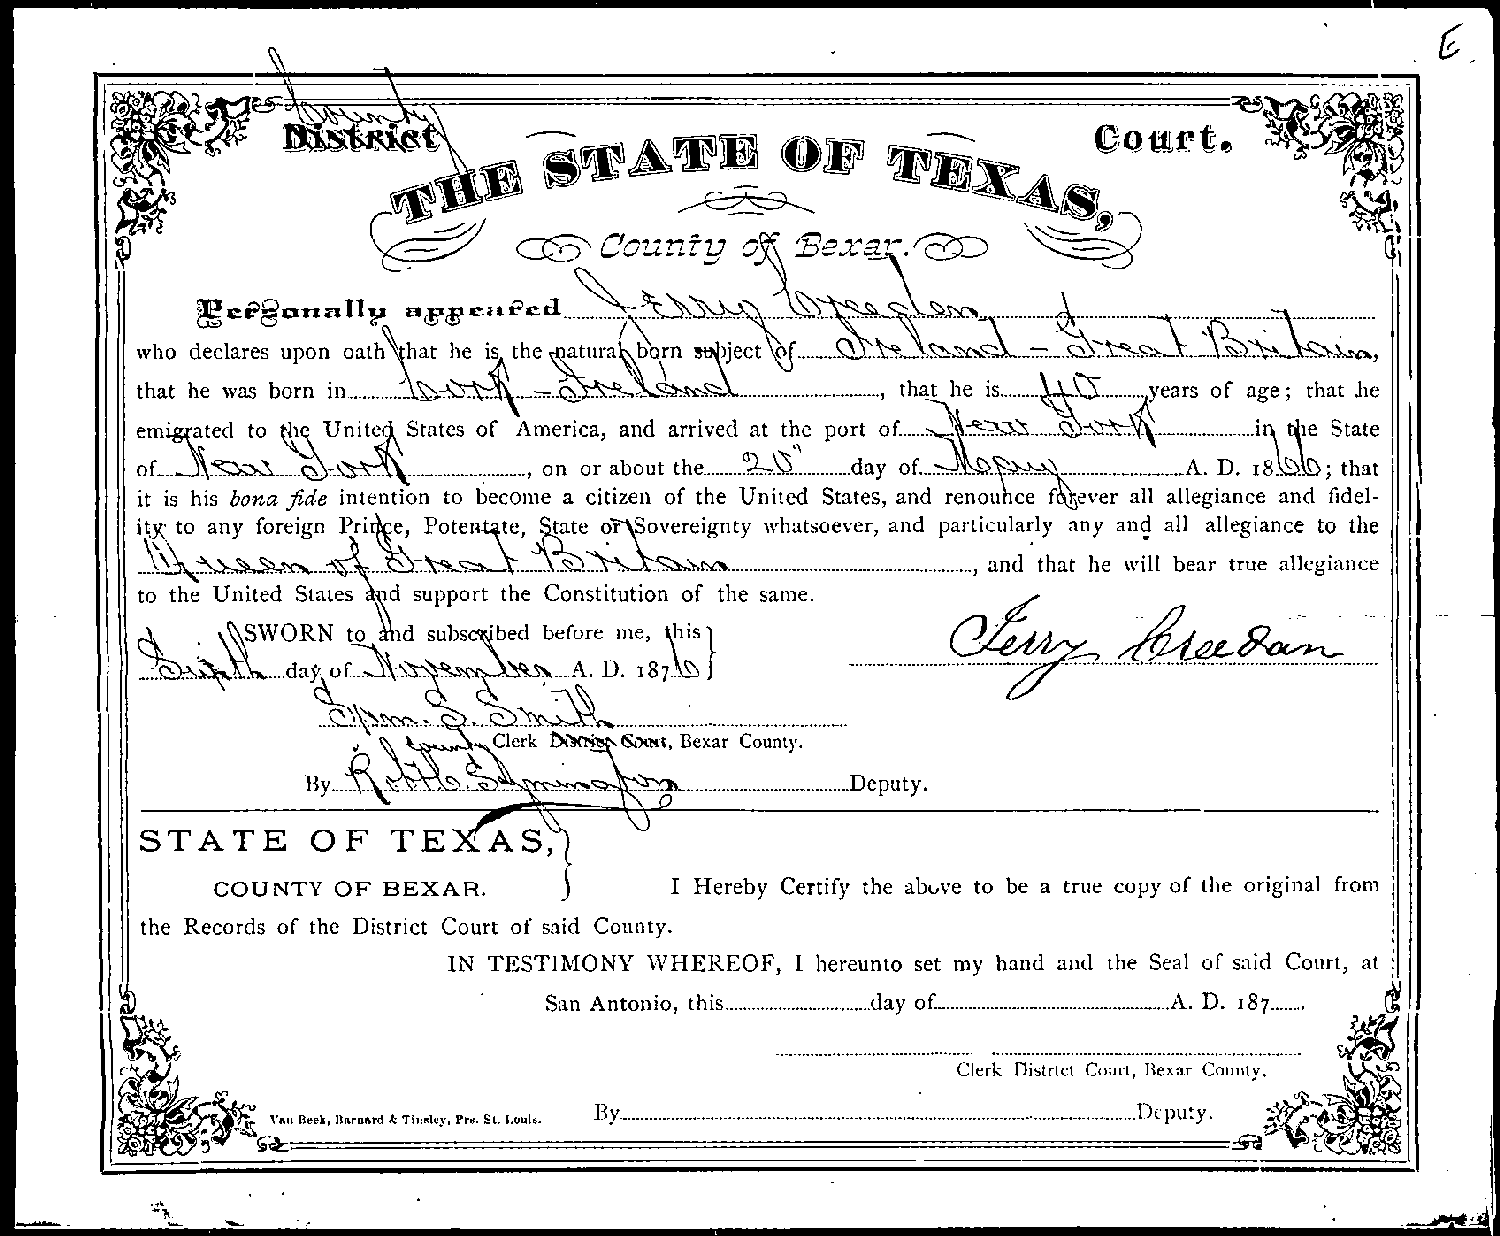 E
County
District Court.
THE STATE OF TEXAS,
County of Bexar.
Personally appeared Jerry Creeden
who declares upon oath that he is the natural born subject of Ireland - Great Britain,
that he was born in Cork - Ireland, that he is 40 years of age; that he
emigrated to the United States of America, and arrived at the port of New York in the State
of New York, on or about the 20" day of A. D. 1866; that
it is his bona fide intention to become a citizen of the United States, and renounce forever all allegiance and fidel-
ity to any foreign Prince, Potentate, State or Sovereignty whatsoever, and particularly any and all allegiance to the
Queen of Great Britain, and that he will bear true allegiance
to the United States and support the Constitution of the same.
SWORN to and subscribed before me, this
Sixth day of November A. D. 1876
Jerry Creedan
Sam. S. Smith
County
Clerk District Court, Bexar County.
By Deputy.
STATE OF TEXAS,
COUNTY OF BEXAR.
I Hereby Certify the above to be a true copy of the original from
the Records of the District Court of said County.
IN TESTIMONY WHEREOF, I hereunto set my hand and the Seal of said Court, at
San Antonio, this day of A. D. 187
Clerk District Court, Bexar County.
By Deputy.
Van Beek, Barnard & Tinsley, Prs. St. Louis.